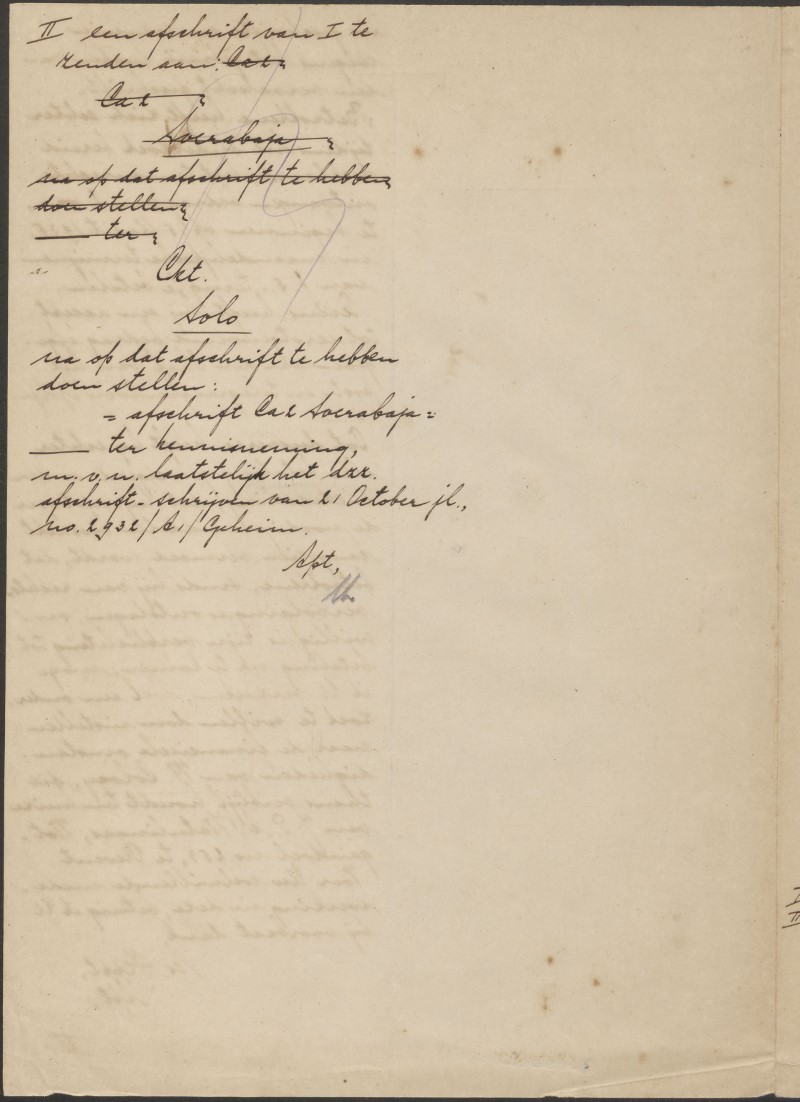 II een afschrift van I te
zenden aan: Ca 2
Ca 2
Soerabaja
na op dat afschrift te hebben
doen stellen
ter
Ckt.
Solo
na op dat afschrift te hebben
doen stellen:
= afschrift Ca 2 Soerabaja =
ter kennisneming,
m. v. n. laatstelijk het dzz.
afschrift-schrijven van 21 October jl.,
no. 2932/A1/Geheim.
Apt,
I
II